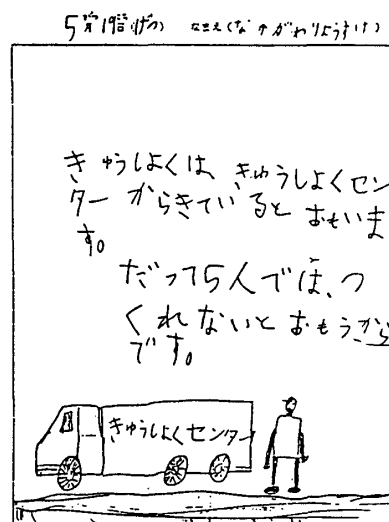 5月19日(げつ) なまえ(ながわりようすけ)
きゅうしよくは、きゅうしよくセン
ター からきていると おもいま
す。
だって5人では、つ
くれないと おもうから
です。
きゅうしよくセンター